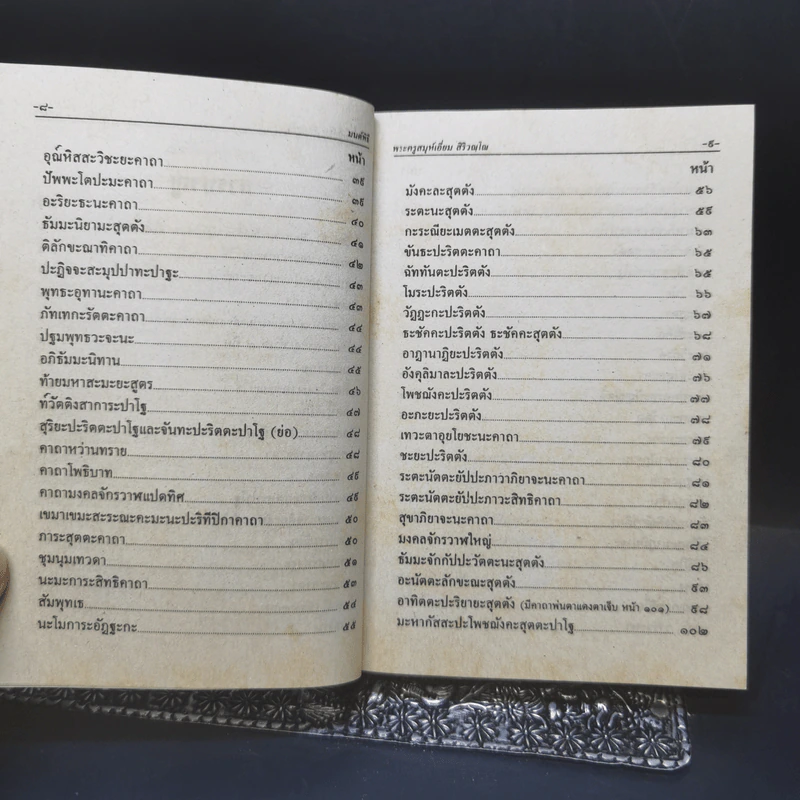 -๘-
มนต์พิธี
หน้า
อุณ๎หิสสะวิชะยะคาถา ๓๙
ปัพพะโตปะมะคาถา ๓๙
อะริยะธะนะคาถา ๔๐
ธัมมะนิยามะสุตตัง ๔๑
ติลักขะณาทิคาถา ๔๒
ปะฏิจจะสะมุปปาทะปาฐะ ๔๓
พุทธะอุทานะคาถา ๔๓
ภัทเทกะรัตตะคาถา ๔๔
ปฐมพุทธวะจะนะ ๔๔
อภิธัมมะนิทาน ๔๕
ท้ายมหาสะมะยะสูตร ๔๖
ท๎วัตติงสาการะปาโฐ ๔๗
สุริยะปะริตตะปาโฐและจันทะปะริตตะปาโฐ (ย่อ) ๔๘
คาถาหว่านทราย ๔๘
คาถาโพธิบาท ๔๙
คาถามงคลจักรวาฬแปดทิศ ๔๙
เขมาเขมะสะระณะคะมะนะปะริทีปิกาคาถา ๕๐
ภาระสุตตะคาถา ๕๐
ชุมนุมเทวดา ๕๑
นะมะการะสิทธิคาถา ๕๓
สัมพุทเธ ๕๔
นะโมการะอัฏฐะกะ ๕๕
พระครูสมุห์เอี่ยม สิริวณฺโณ -๙-
หน้า
มังคะละสุตตัง ๕๖
ระตะนะสุตตัง ๕๙
กะระณียะเมตตะสุตตัง ๖๓
ขันธะปะริตตะคาถา ๖๕
ฉัททันตะปะริตตัง ๖๕
โมระปะริตตัง ๖๖
วัฏฏะกะปะริตตัง ๖๗
ธะชัคคะปะริตตัง ธะชัคคะสุตตัง ๖๘
อาฏานาฏิยะปะริตตัง ๗๑
อังคุลิมาละปะริตตัง ๗๖
โพชฌังคะปะริตตัง ๗๗
อะภะยะปะริตตัง ๗๘
เทวะตาอุยโยชะนะคาถา ๗๙
ชะยะปะริตตัง ๘๐
ระตะนัตตะยัปปะภาวาภิยาจะนะคาถา ๘๑
ระตะนัตตะยัปปะภาวะสิทธิคาถา ๘๒
สุขาภิยาจะนะคาถา ๘๓
มงคลจักรวาฬใหญ่ ๘๔
ธัมมะจักกัปปะวัตตะนะสุตตัง ๘๖
อะนัตตะลักขะณะสุตตัง ๙๓
อาทิตตะปะริยายะสุตตัง (มีคาถาพ่นตาแดงตาเจ็บ หน้า ๑๐๑) ๙๘
มะหากัสสะปะโพชฌังคะสุตตะปาโฐ ๑๐๒